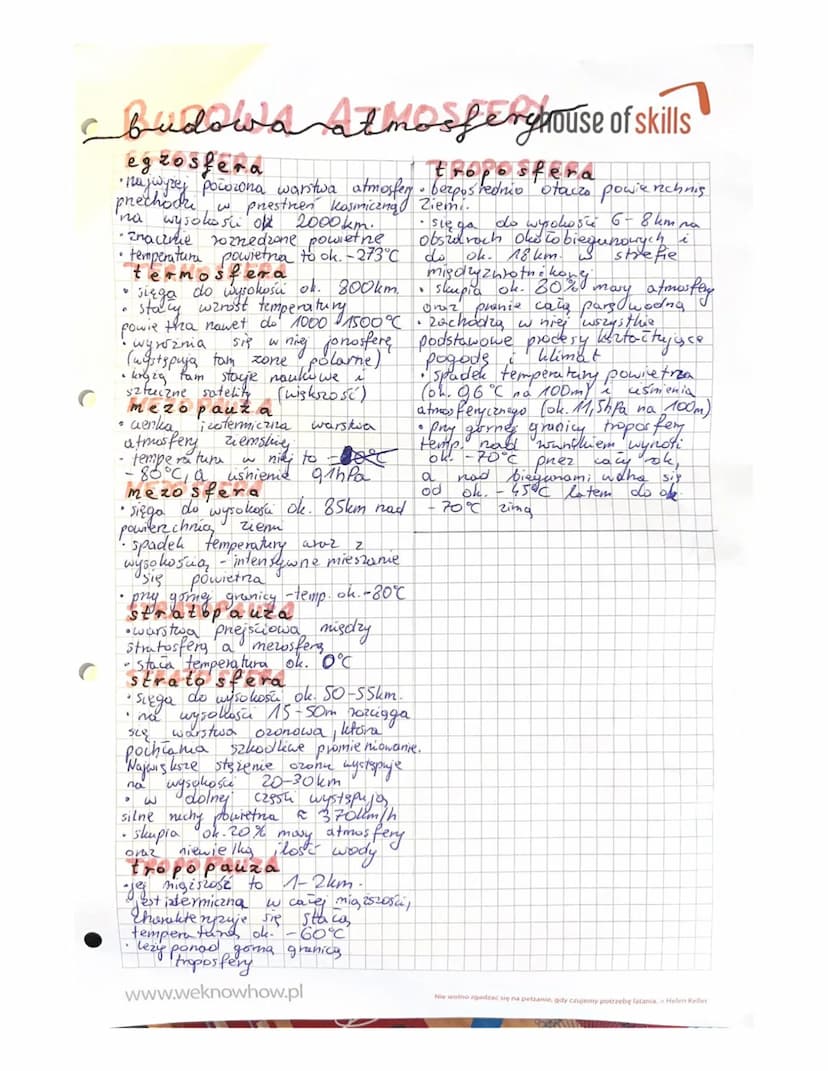 BUDOWA ATMOSFERY
budowa atmosfery
house of skills
egzosfera
• najwyżej położona warstwa atmosfery
przechodzi w przestrzeń kosmiczną
na wysokości ok 2000km.
• znacznie rozrzedzone powietrze
• temperatura powietrza to ok. -273°C
termosfera
• sięga do wysokości ok. 800km.
• stały wzrost temperatury
powietrza nawet do 1000 - 1500°C
• wyróżnia się w niej jonosferę
(występują tam zorze polarne)
• krążą tam stacje naukowe i
sztuczne satelity (większość)
mezopauza
• cienka izotermiczna warstwa
atmosfery ziemskiej
• temperatura w niej to
-80°C, a ciśnienie 91hPa
mezosfera
• sięga do wysokości ok. 85km nad
powierzchnią ziemi
• spadek temperatury wraz z
wysokością - intensywne mieszanie
się powietrza
• przy górnej granicy - temp. ok. -80°C
stratopauza
• warstwa przejściowa między
stratosferą a mezosferą
• stała temperatura ok. 0°C
stratosfera
• sięga do wysokości ok. 50-55km.
• na wysokości 15-50m rozciąga
się warstwa ozonowa, która
pochłania szkodliwe promieniowanie.
Największe stężenie ozonu występuje
na wysokości 20-30km
• w dolnej części występują
silne ruchy powietrza ≈ 370km/h
• skupia ok. 20% masy atmosfery
oraz niewielką ilość wody
tropopauza
• jej miąższość to 1-2km.
• jest izotermiczna w całej miąższości,
charakteryzuje się stałą
temperaturą ok. -60°C
• leży ponad górną granicą
troposfery
troposfera
• bezpośrednio otacza powierzchnię
Ziemi.
• sięga do wysokości 6-8km na
obszarach okołobiegunowych i
do ok. 18km. w strefie
międzyzwrotnikowej
• skupia ok. 80% masy atmosfery
oraz prawie całą parę wodną
• zachodzą w niej wszystkie
podstawowe procesy kształtujące
pogodę i klimat
• spadek temperatury powietrza
(ok. 0,6°C na 100m) i ciśnienia
atmosferycznego (ok. 11,5hPa na 100m)
• przy górnej granicy troposfery
temp. nad równikiem wynosi
ok. -70°C przez cały rok,
a nad biegunami waha się
od ok. -45°C latem do ok
-70°C zimą
www.weknowhow.pl
Nie wolno zgadzać się na pełzanie, gdy czujemy potrzebę latania. – Helen Keller